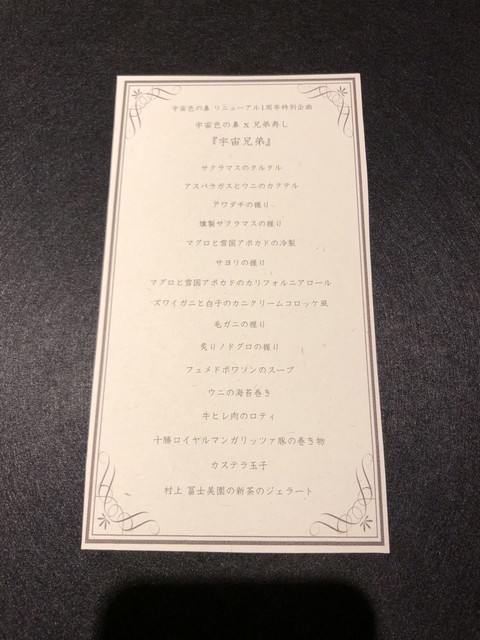 宇宙色の鼻 リニューアル1周年特別企画
宇宙色の鼻 x 兄弟寿し
『宇宙兄弟』
サクラマスのタルタル
アスパラガスとウニのカクテル
アワダチの握り
燻製サクラマスの握り
マグロと雪国アボカドの冷製
サヨリの握り
マグロと雪国アボカドのカリフォルニアロール
ズワイガニと白子のカニクリームコロッケ風
毛ガニの握り
炙りノドグロの握り
フュメドポワソンのスープ
ウニの海苔巻き
牛ヒレ肉のロティ
十勝ロイヤルマンガリッツァ豚の巻き物
カステラ玉子
村上 冨士美園の新茶のジェラート